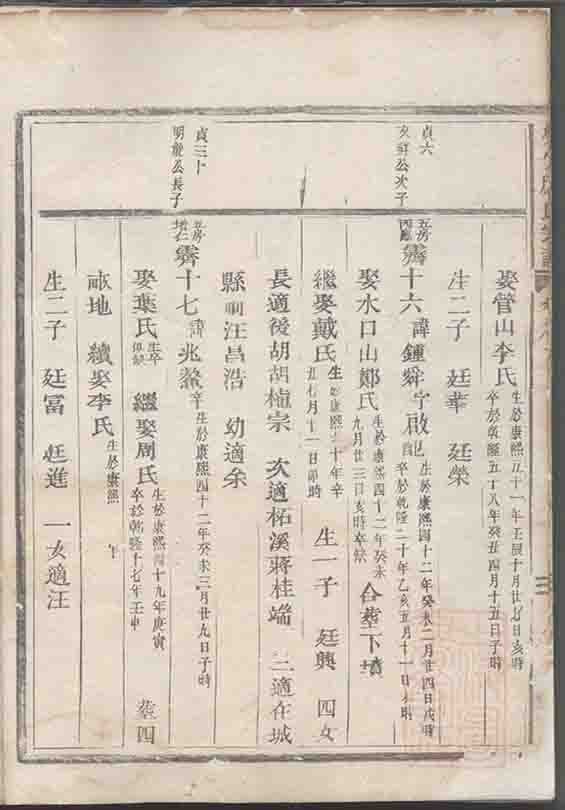 娶管山李氏 生於康熙五十一年壬辰十月廿七日亥時
卒於乾隆五十八年癸丑四月十五日子時
生二子 廷華 廷榮
貞六
次子
五房
霽十六 諱鍾舜字啟 生於康熙四十二年癸未二月廿四日戌時
卒於乾隆二十年乙亥五月十一日
娶水口山鄭氏 生於康熙四十二年癸未
九月廿三日亥時卒缺 合葬下墳
繼娶戴氏 生於康熙 十年辛
丑七月十一日卯時 生一子 廷興 四女
長適後胡胡楨宗 次適柘溪蔣桂端 三適在城
縣前汪昌浩 幼適余
貞三十
明 公長子
五房
霽十七 諱兆鰲 生於康熙四十二年癸未三月廿九日子時
卒
娶葉氏 生卒
俱缺 繼娶周氏 生於康熙四十九年庚寅
卒於乾隆十七年壬申 葬四
畝地 續娶李氏 生於康熙 年
生二子 廷富 廷進 一女適汪